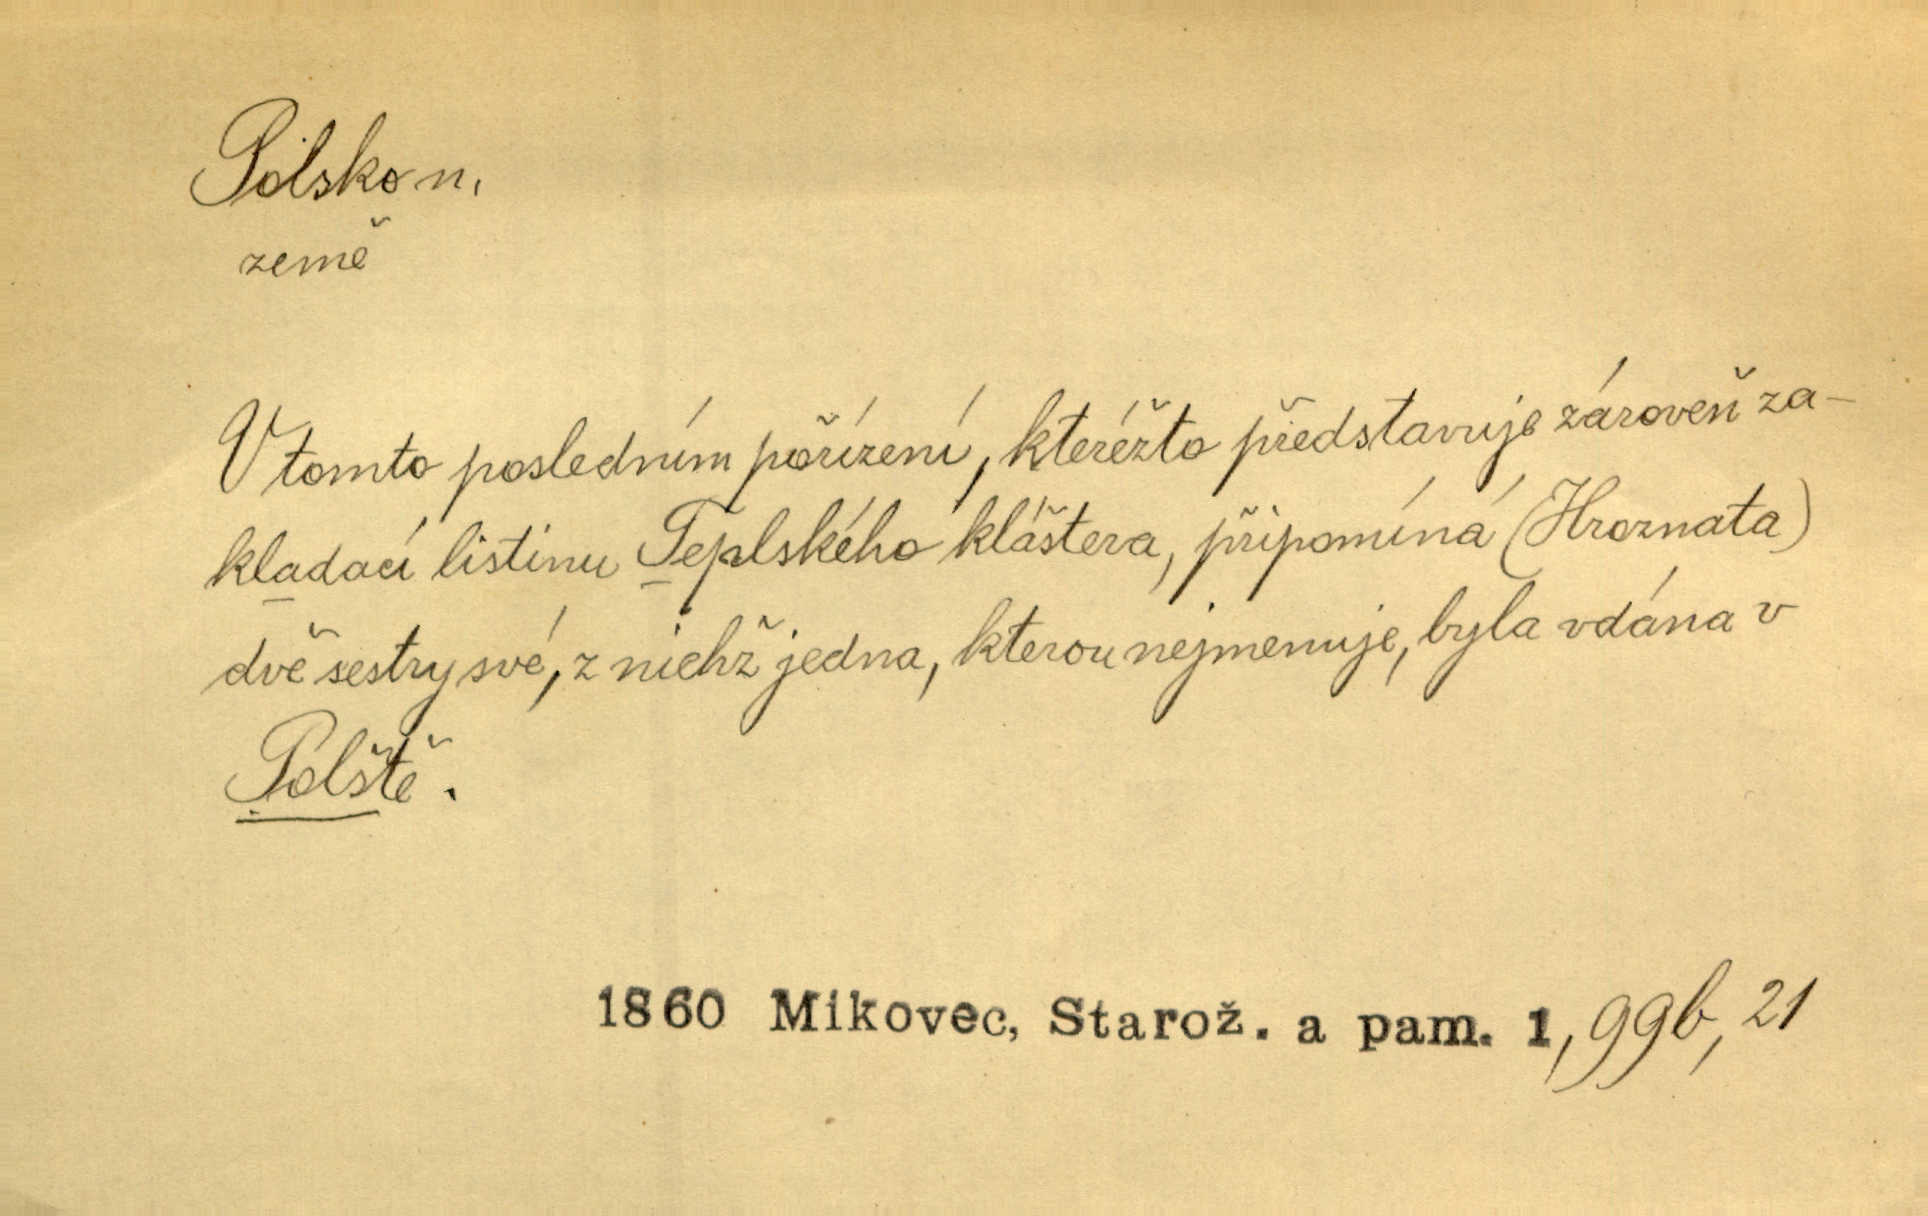 Polsko n.
země
V tomto posledním pořízení, kteréžto představuje zároveň za-
kladací listinu Teplského kláštera, připomíná (Hroznata)
dvě sestry své, z nichž jedna, kterou nejmenuje, byla vdána v
Polště.
1860 Mikovec, Starož. a pam. 1, 99b, 21